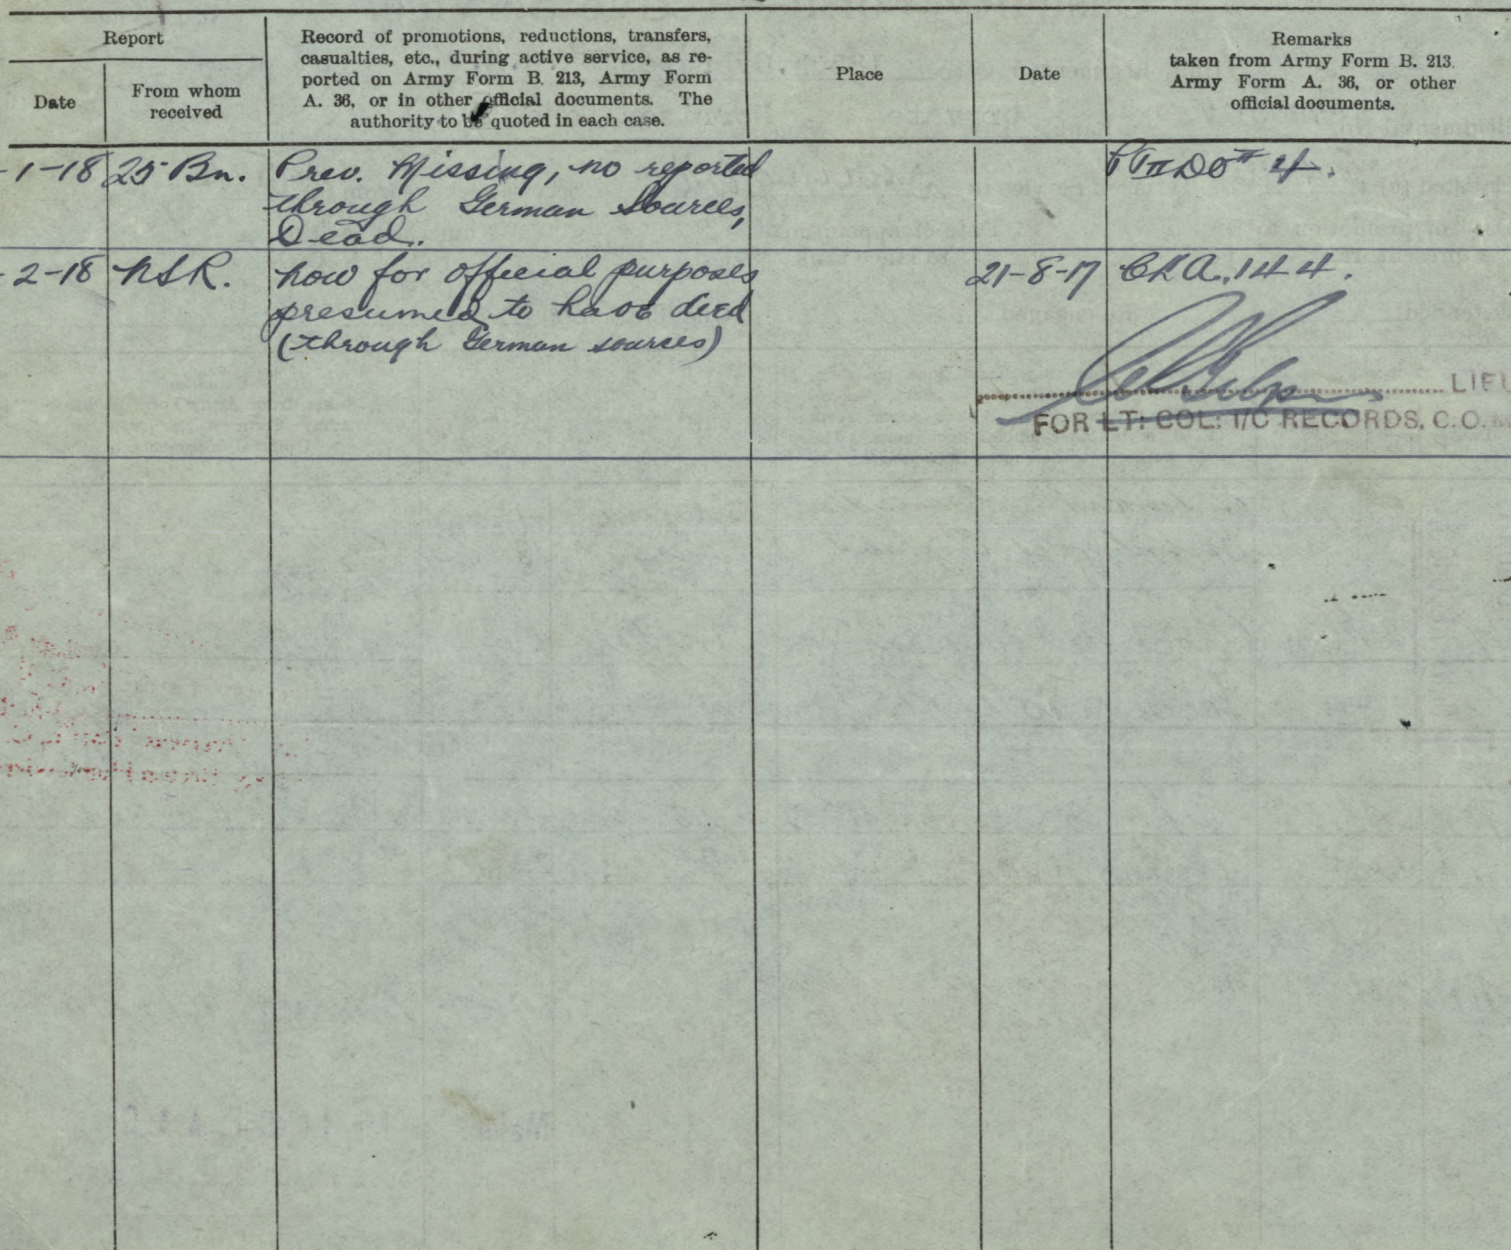 Report
Date
From whom
received
Record of promotions, reductions, transfers,
casualties, etc., during active service, as re-
ported on Army Form B. 213, Army Form
A. 36, or in other official documents. The
authority to be quoted in each case.
Place
Date
Remarks
taken from Army Form B. 213,
Army Form A. 36, or other
official documents.
-1-18 25 Bn. Prev. Missing, no reported
through German Sources,
Dead.
Pt II DO # 4.
-2-18 now for official purposes 21-8-17 144.
presumed to have died
(through German sources)
LIEU
FOR LT: COL: I/C RECORDS, C.O.